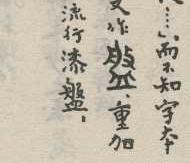 ……」而不知字本
作盤重加
流行漆盤。